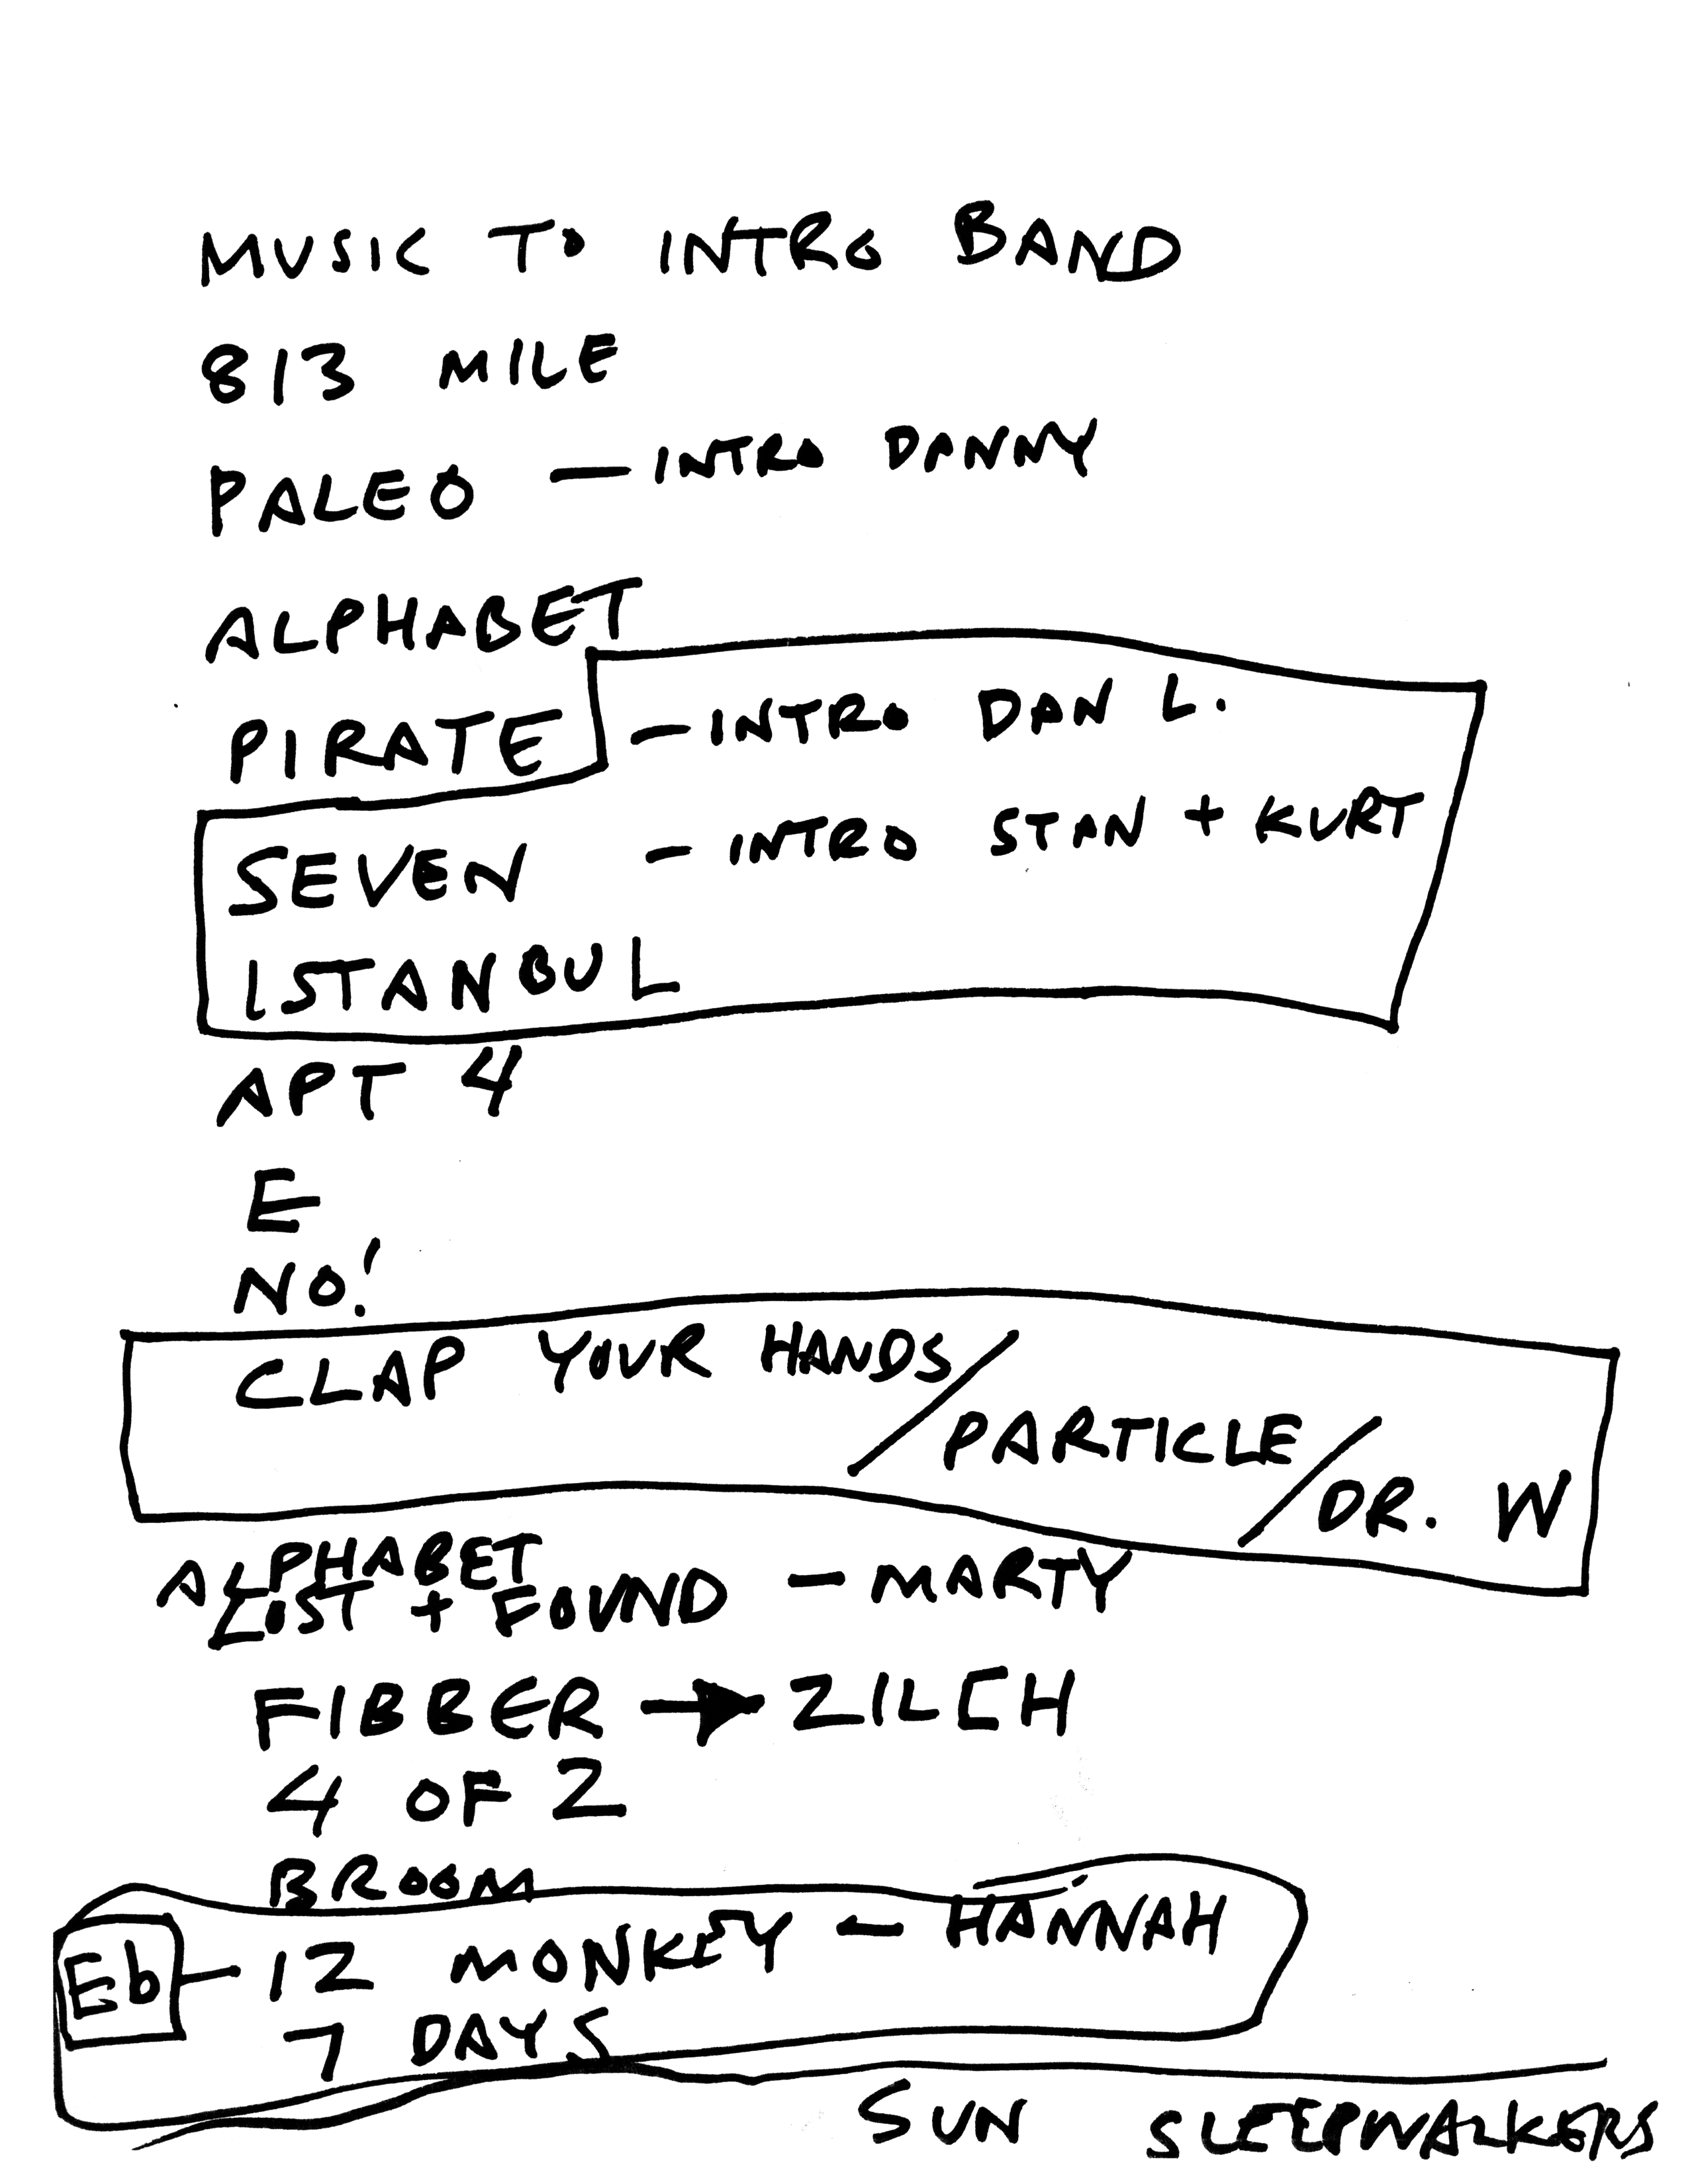 MUSIC TO INTRO BAND
813 MILE
PALEO — INTRO DANNY
ALPHABET
PIRATE - INTRO DAN L.
SEVEN - INTRO STAN + KURT
ISTANBUL
APT 4
E
NO!
CLAP YOUR HANDS/
PARTICLE/
DR. W
ALPHABET
LOST + FOUND - MARTY
FIBBER → ZILCH
4 OF 2
BROOM
Eb - 12 MONKEY - HANNAH
7 DAYS
SUN SLEEPWALKERS